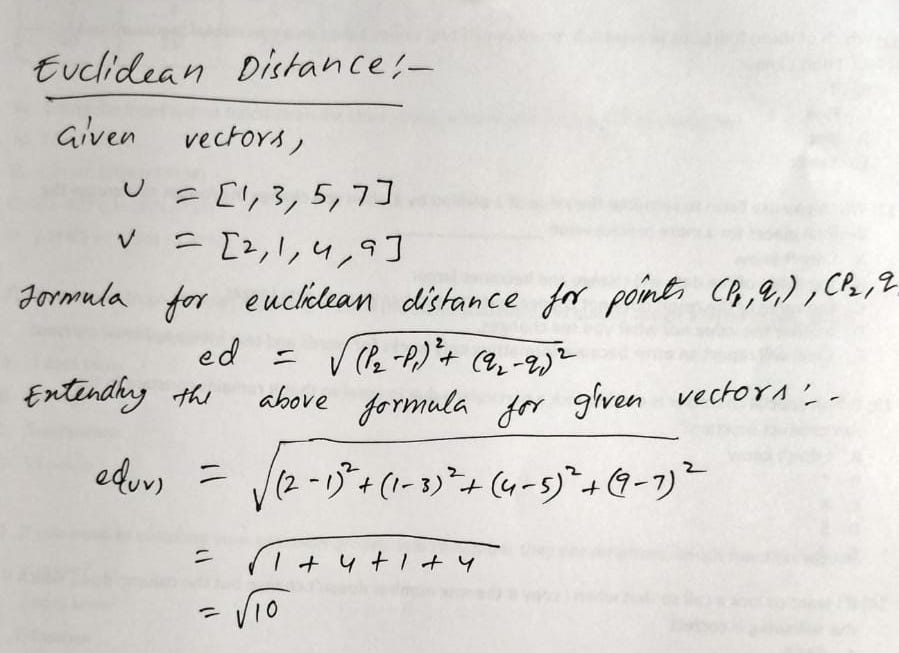 Euclidean Distance:-
Given vectors,
U = [1, 3, 5, 7]
V = [2, 1, 4, 9]
Formula for euclidean distance for points (P₁, q₁), (P₂, q
ed = √(P₂-P₁)²+ (q₂-q₁)²
Extending the above formula for given vectors:-
ed(uv) = √(2-1)²+(1-3)²+(4-5)²+(9-7)²
= √1+4+1+4
= √10